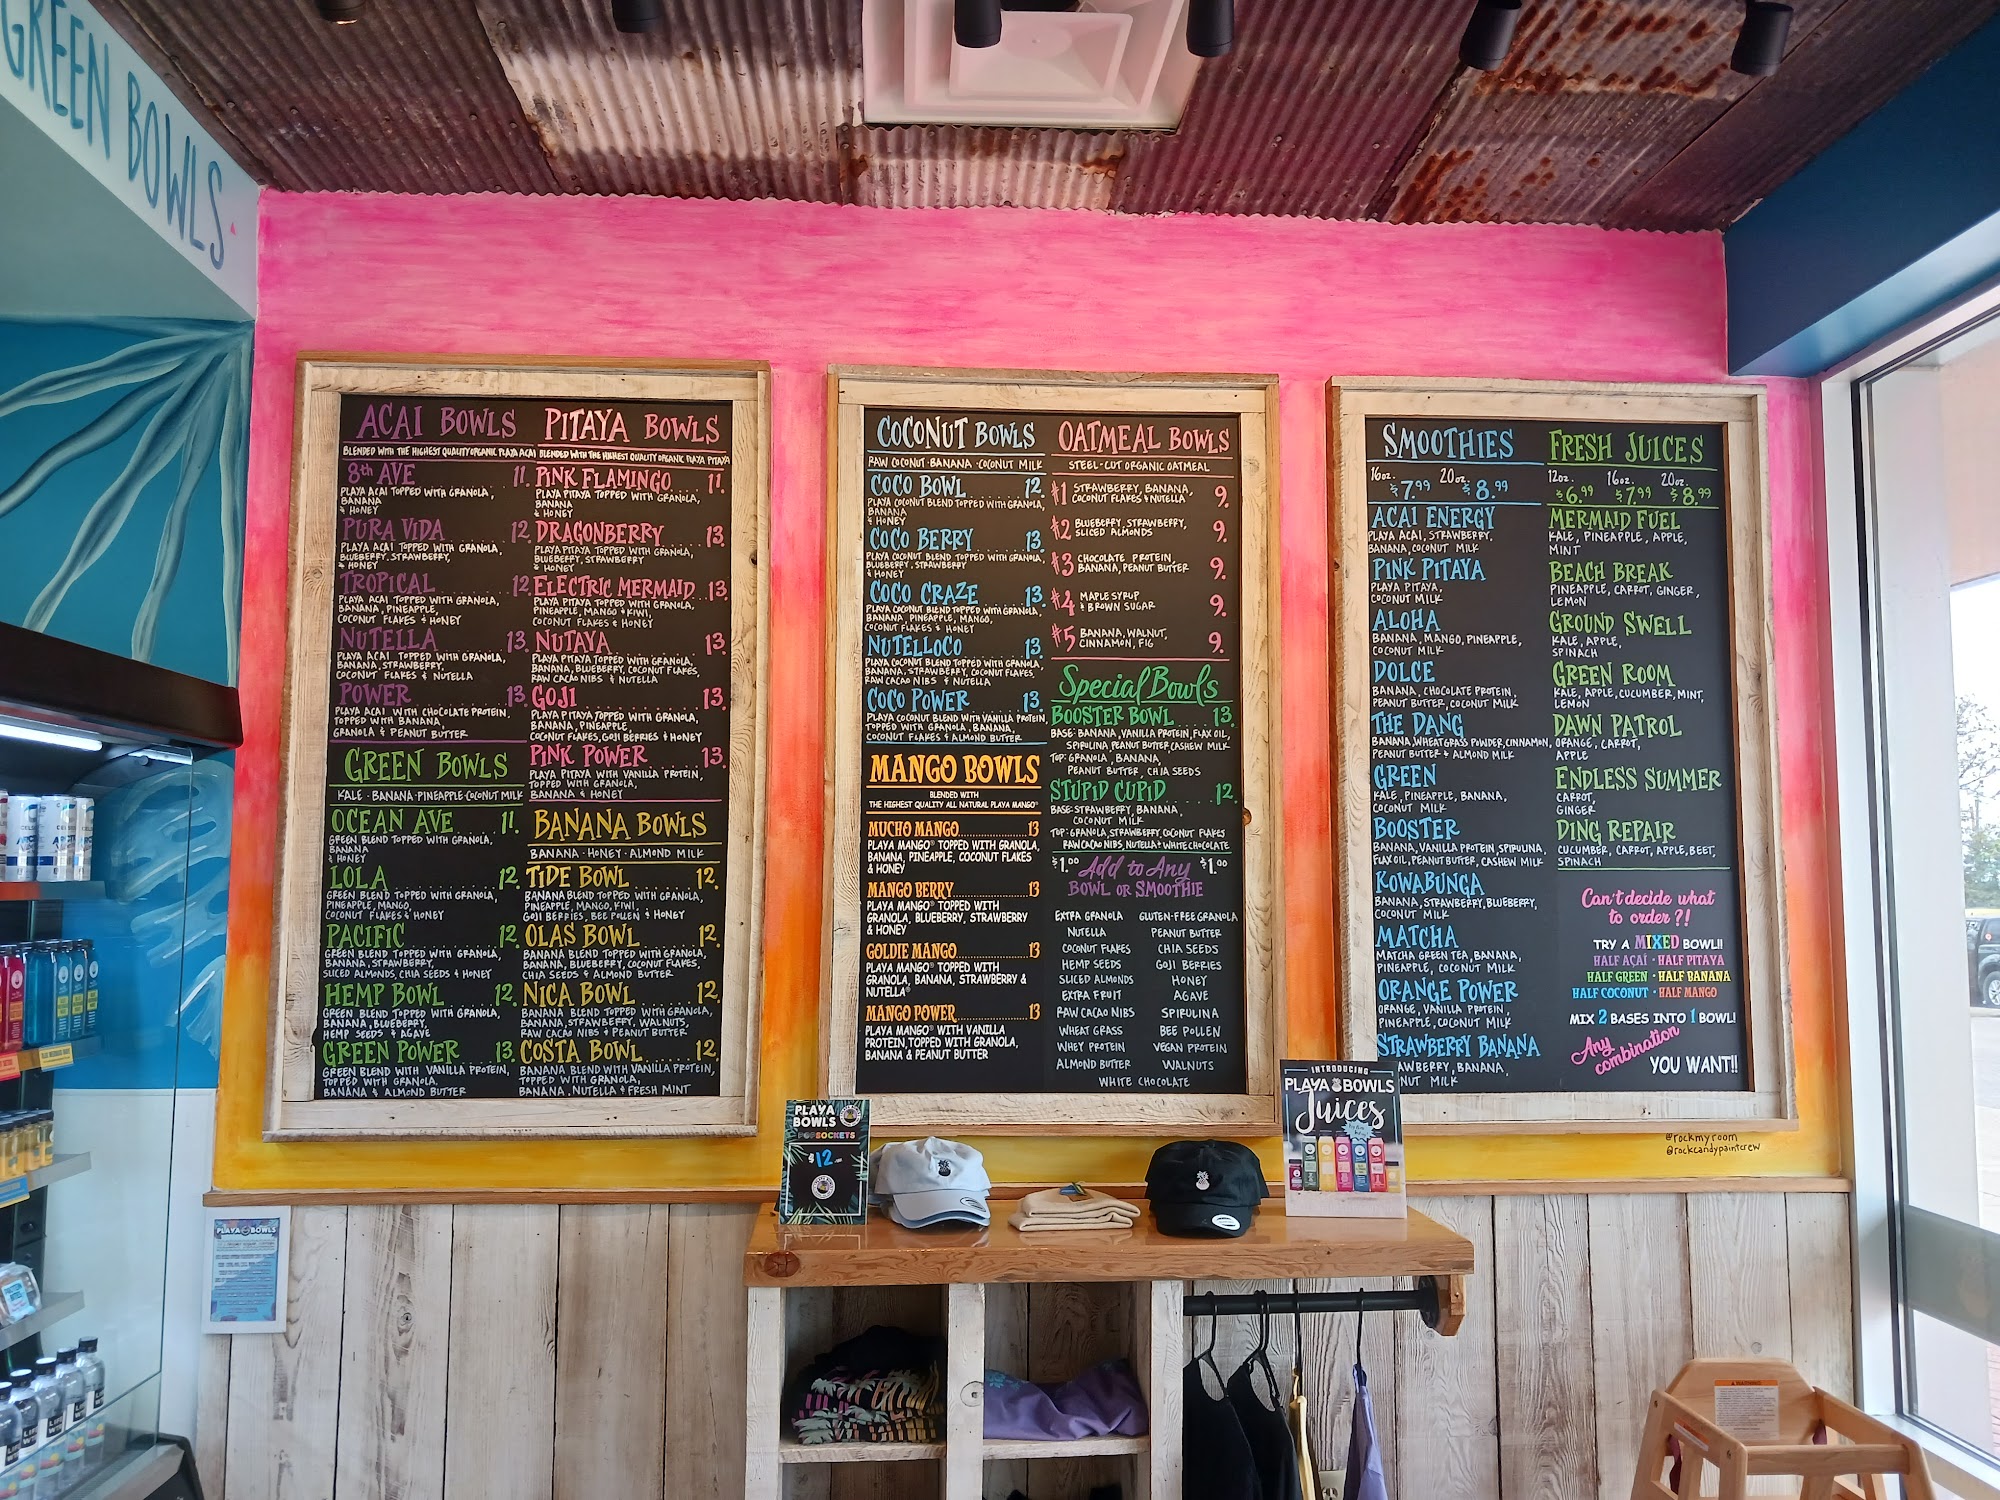 GREEN BOWLS
ACAI BOWLS
BLENDED WITH THE HIGHEST QUALITY ORGANIC PLAYA ACAI
8th AVE 11.
PLAYA ACAI TOPPED WITH GRANOLA,
BANANA
& HONEY
PURA VIDA 12.
PLAYA ACAI TOPPED WITH GRANOLA,
BLUEBERRY, STRAWBERRY,
& HONEY
TROPICAL 12.
PLAYA ACAI TOPPED WITH GRANOLA,
BANANA, PINEAPPLE,
COCONUT FLAKES & HONEY
NUTELLA 13.
PLAYA ACAI TOPPED WITH GRANOLA,
BANANA, STRAWBERRY,
COCONUT FLAKES & NUTELLA
POWER 13.
PLAYA ACAI WITH CHOCOLATE PROTEIN,
TOPPED WITH BANANA,
GRANOLA & PEANUT BUTTER
GREEN BOWLS
KALE · BANANA · PINEAPPLE · COCONUT MILK
OCEAN AVE 11.
GREEN BLEND TOPPED WITH GRANOLA,
BANANA
& HONEY
LOLA 12.
GREEN BLEND TOPPED WITH GRANOLA,
PINEAPPLE, MANGO,
COCONUT FLAKES & HONEY
PACIFIC 12.
GREEN BLEND TOPPED WITH GRANOLA,
BANANA, STRAWBERRY,
SLICED ALMONDS, CHIA SEEDS & HONEY
HEMP BOWL 12.
GREEN BLEND TOPPED WITH GRANOLA,
BANANA, BLUEBERRY,
HEMP SEEDS & AGAVE
GREEN POWER 13.
GREEN BLEND WITH VANILLA PROTEIN,
TOPPED WITH GRANOLA,
BANANA & ALMOND BUTTER
PITAYA BOWLS
BLENDED WITH THE HIGHEST QUALITY ORGANIC PLAYA PITAYA
PINK FLAMINGO 11.
PLAYA PITAYA TOPPED WITH GRANOLA,
BANANA
& HONEY
DRAGONBERRY 13.
PLAYA PITAYA TOPPED WITH GRANOLA,
BLUEBERRY, STRAWBERRY
& HONEY
ELECTRIC MERMAID 13.
PLAYA PITAYA TOPPED WITH GRANOLA,
PINEAPPLE, MANGO & KIWI,
COCONUT FLAKES & HONEY
NUTAYA 13.
PLAYA PITAYA TOPPED WITH GRANOLA,
BANANA, BLUEBERRY, COCONUT FLAKES,
RAW CACAO NIBS & NUTELLA
GOJI 13.
PLAYA PITAYA TOPPED WITH GRANOLA,
BANANA, PINEAPPLE
COCONUT FLAKES, GOJI BERRIES & HONEY
PINK POWER 13.
PLAYA PITAYA WITH VANILLA PROTEIN,
TOPPED WITH GRANOLA,
BANANA & HONEY
BANANA BOWLS
BANANA · HONEY · ALMOND MILK
TIDE BOWL 12.
BANANA BLEND TOPPED WITH GRANOLA,
PINEAPPLE, MANGO, KIWI,
GOJI BERRIES, BEE POLLEN & HONEY
OLAS BOWL 12.
BANANA BLEND TOPPED WITH GRANOLA,
BANANA, BLUEBERRY, COCONUT FLAKES,
CHIA SEEDS & ALMOND BUTTER
NICA BOWL 12.
BANANA BLEND TOPPED WITH GRANOLA,
BANANA, STRAWBERRY, WALNUTS,
RAW CACAO NIBS & PEANUT BUTTER
COSTA BOWL 12.
BANANA BLEND WITH VANILLA PROTEIN,
TOPPED WITH GRANOLA,
BANANA, NUTELLA & FRESH MINT
COCONUT BOWLS
RAW COCONUT · BANANA · COCONUT MILK
COCO BOWL 12.
PLAYA COCONUT BLEND TOPPED WITH GRANOLA,
BANANA
& HONEY
COCO BERRY 13.
PLAYA COCONUT BLEND TOPPED WITH GRANOLA,
BLUEBERRY, STRAWBERRY
& HONEY
COCO CRAZE 13.
PLAYA COCONUT BLEND TOPPED WITH GRANOLA,
BANANA, PINEAPPLE, MANGO,
COCONUT FLAKES & HONEY
NUTELLOCO 13.
PLAYA COCONUT BLEND TOPPED WITH GRANOLA,
BANANA, STRAWBERRY, COCONUT FLAKES,
RAW CACAO NIBS & NUTELLA
COCO POWER 13.
PLAYA COCONUT BLEND WITH VANILLA PROTEIN,
TOPPED WITH GRANOLA, BANANA,
COCONUT FLAKES & ALMOND BUTTER
MANGO BOWLS
BLENDED WITH
THE HIGHEST QUALITY ALL NATURAL PLAYA MANGO®
MUCHO MANGO 13
PLAYA MANGO® TOPPED WITH GRANOLA,
BANANA, PINEAPPLE, COCONUT FLAKES
& HONEY
MANGO BERRY 13
PLAYA MANGO® TOPPED WITH
GRANOLA, BLUEBERRY, STRAWBERRY
& HONEY
GOLDIE MANGO 13
PLAYA MANGO® TOPPED WITH
GRANOLA, BANANA, STRAWBERRY &
NUTELLA®
MANGO POWER 13
PLAYA MANGO® WITH VANILLA
PROTEIN, TOPPED WITH GRANOLA,
BANANA & PEANUT BUTTER
OATMEAL BOWLS
STEEL-CUT ORGANIC OATMEAL
#1 STRAWBERRY, BANANA,
COCONUT FLAKES & NUTELLA 9.
#2 BLUEBERRY, STRAWBERRY,
SLICED ALMONDS 9.
#3 CHOCOLATE PROTEIN,
BANANA, PEANUT BUTTER 9.
#4 MAPLE SYRUP
& BROWN SUGAR 9.
#5 BANANA, WALNUT,
CINNAMON, FIG 9.
Special Bowls
BOOSTER BOWL 13.
BASE: BANANA, VANILLA PROTEIN, FLAX OIL,
SPIRULINA, PEANUT BUTTER, CASHEW MILK
TOP: GRANOLA, BANANA,
PEANUT BUTTER, CHIA SEEDS
STUPID CUPID 12.
BASE: STRAWBERRY, BANANA,
COCONUT MILK
TOP: GRANOLA, STRAWBERRY, COCONUT FLAKES
RAW CACAO NIBS, NUTELLA & WHITE CHOCOLATE
$1.00 Add to Any $1.00
BOWL OR SMOOTHIE
EXTRA GRANOLA GLUTEN-FREE GRANOLA
NUTELLA PEANUT BUTTER
COCONUT FLAKES CHIA SEEDS
HEMP SEEDS GOJI BERRIES
SLICED ALMONDS HONEY
EXTRA FRUIT AGAVE
RAW CACAO NIBS SPIRULINA
WHEAT GRASS BEE POLLEN
WHEY PROTEIN VEGAN PROTEIN
ALMOND BUTTER WALNUTS
WHITE CHOCOLATE
SMOOTHIES
16oz. $7.99 20oz. $8.99
ACAI ENERGY
PLAYA ACAI, STRAWBERRY,
BANANA, COCONUT MILK
PINK PITAYA
PLAYA PITAYA,
COCONUT MILK
ALOHA
BANANA, MANGO, PINEAPPLE,
COCONUT MILK
DOLCE
BANANA, CHOCOLATE PROTEIN,
PEANUT BUTTER, COCONUT MILK
THE DANG
BANANA, WHEATGRASS POWDER, CINNAMON,
PEANUT BUTTER & ALMOND MILK
GREEN
KALE, PINEAPPLE, BANANA,
COCONUT MILK
BOOSTER
BANANA, VANILLA PROTEIN, SPIRULINA,
FLAX OIL, PEANUT BUTTER, CASHEW MILK
KOWABUNGA
BANANA, STRAWBERRY, BLUEBERRY,
COCONUT MILK
MATCHA
MATCHA GREEN TEA, BANANA,
PINEAPPLE, COCONUT MILK
ORANGE POWER
ORANGE, VANILLA PROTEIN,
PINEAPPLE, COCONUT MILK
STRAWBERRY BANANA
AWBERRY, BANANA,
NUT MILK
FRESH JUICES
12oz. $6.99 16oz. $7.99 20oz. $8.99
MERMAID FUEL
KALE, PINEAPPLE, APPLE,
MINT
BEACH BREAK
PINEAPPLE, CARROT, GINGER,
LEMON
GROUND SWELL
KALE, APPLE,
SPINACH
GREEN ROOM
KALE, APPLE, CUCUMBER, MINT,
LEMON
DAWN PATROL
ORANGE, CARROT,
APPLE
ENDLESS SUMMER
CARROT,
GINGER
DING REPAIR
CUCUMBER, CARROT, APPLE, BEET,
SPINACH
Can't decide what
to order?!
TRY A MIXED BOWL!!
HALF ACAÍ · HALF PITAYA
HALF GREEN · HALF BANANA
HALF COCONUT · HALF MANGO
MIX 2 BASES INTO 1 BOWL!
Any
combination
YOU WANT!!
@rockmyroom
@rockcandypaintcrew
PLAYA
BOWLS
POPSOCKETS
$12
INTRODUCING
PLAYA BOWLS
Juices
PLAYA BOWLS
WARNING